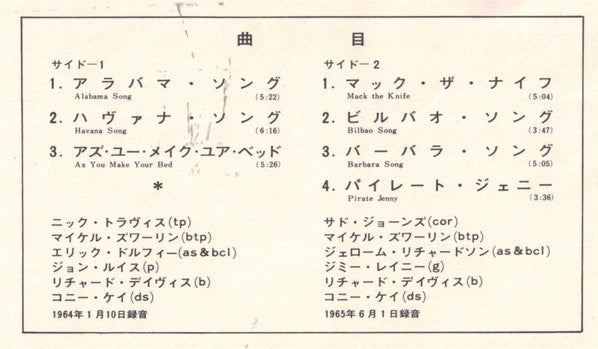 曲目
サイド－1
1. アラバマ・ソング
Alabama Song (5:22)
2. ハヴァナ・ソング
Havana Song (6:16)
3. アズ・ユー・メイク・ユア・ベッド
As You Make Your Bed (5:26)
*
ニック・トラヴィス(tp)
マイケル・ズワーリン(btp)
エリック・ドルフィー(as&bcl)
ジョン・ルイス(p)
リチャード・デイヴィス(b)
コニー・ケイ(ds)
1964年1月10日録音
サイド－2
1. マック・ザ・ナイフ
Mack the Knife (5:04)
2. ビルバオ・ソング
Bilbao Song (3:47)
3. バーバラ・ソング
Barbara Song (5:05)
4. パイレート・ジェニー
Pirate Jenny (3:36)
サド・ジョーンズ(cor)
マイケル・ズワーリン(btp)
ジェローム・リチャードソン(as&bcl)
ジミー・レイニー(g)
リチャード・デイヴィス(b)
コニー・ケイ(ds)
1965年6月1日録音